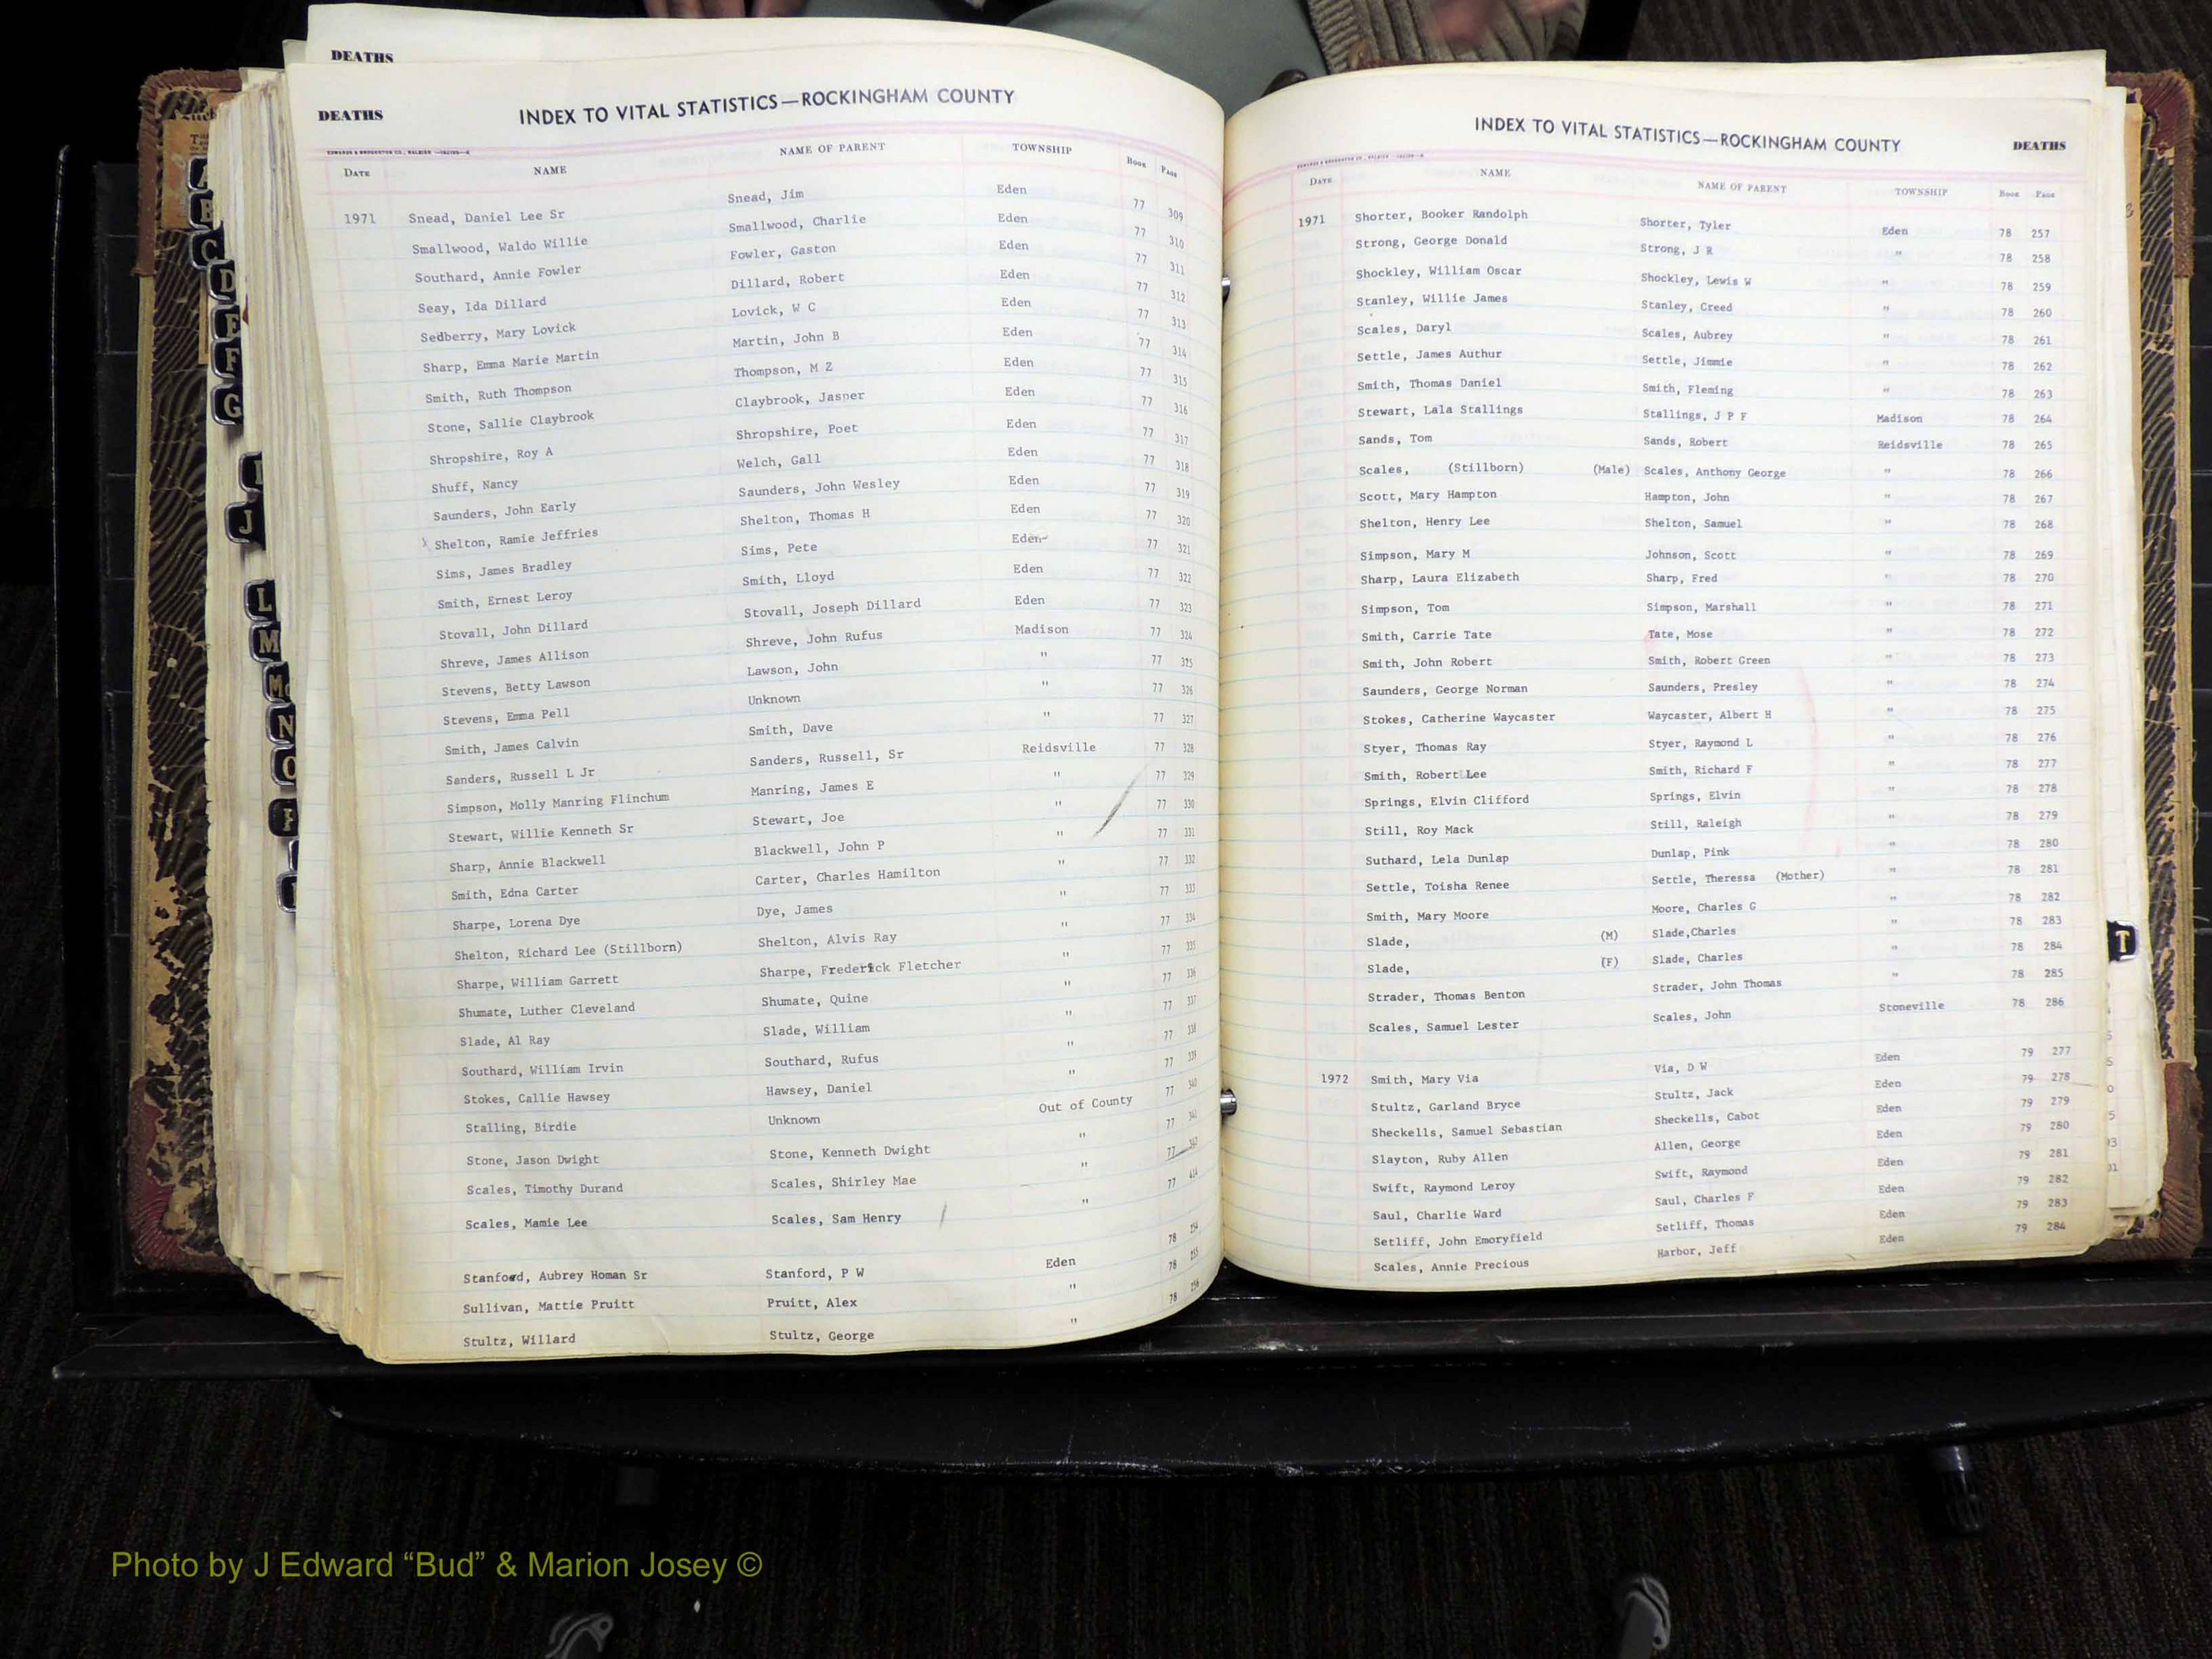 DEATHS
DEATHS
INDEX TO VITAL STATISTICS—ROCKINGHAM COUNTY
DATE NAME NAME OF PARENT TOWNSHIP BOOK PAGE
1971 Snead, Daniel Lee Sr Snead, Jim Eden 77 309
Smallwood, Waldo Willie Smallwood, Charlie Eden 77 310
Southard, Annie Fowler Fowler, Gaston Eden 77 311
Seay, Ida Dillard Dillard, Robert Eden 77 312
Sedberry, Mary Lovick Lovick, W C Eden 77 313
Sharp, Emma Marie Martin Martin, John B Eden 77 314
Smith, Ruth Thompson Thompson, M Z Eden 77 315
Stone, Sallie Claybrook Claybrook, Jasper Eden 77 316
Shropshire, Roy A Shropshire, Poet Eden 77 317
Shuff, Nancy Welch, Gall Eden 77 318
Saunders, John Early Saunders, John Wesley Eden 77 319
Shelton, Ramie Jeffries Shelton, Thomas H Eden 77 320
Sims, James Bradley Sims, Pete Eden 77 321
Smith, Ernest Leroy Smith, Lloyd Eden 77 322
Stovall, John Dillard Stovall, Joseph Dillard Eden 77 323
Shreve, James Allison Shreve, John Rufus Madison 77 324
Stevens, Betty Lawson Lawson, John " 77 325
Stevens, Emma Pell Unknown " 77 326
Smith, James Calvin Smith, Dave " 77 327
Sanders, Russell L Jr Sanders, Russell, Sr Reidsville 77 328
Simpson, Molly Manring Flinchum Manring, James E " 77 329
Stewart, Willie Kenneth Sr Stewart, Joe " 77 330
Sharp, Annie Blackwell Blackwell, John P " 77 331
Smith, Edna Carter Carter, Charles Hamilton " 77 332
Sharpe, Lorena Dye Dye, James " 77 333
Shelton, Richard Lee (Stillborn) Shelton, Alvis Ray " 77 334
Sharpe, William Garrett Sharpe, Frederick Fletcher " 77 335
Shumate, Luther Cleveland Shumate, Quine " 77 336
Slade, Al Ray Slade, William " 77 337
Southard, William Irvin Southard, Rufus " 77 338
Stokes, Callie Hawsey Hawsey, Daniel " 77 339
Stalling, Birdie Unknown Out of County 77 340
Stone, Jason Dwight Stone, Kenneth Dwight " 77 341
Scales, Timothy Durand Scales, Shirley Mae " 77 342
Scales, Mamie Lee Scales, Sam Henry " 77 414
Stanford, Aubrey Homan Sr Stanford, P W Eden 78 254
Sullivan, Mattie Pruitt Pruitt, Alex " 78 255
Stultz, Willard Stultz, George " 78 256
INDEX TO VITAL STATISTICS—ROCKINGHAM COUNTY DEATHS
DATE NAME NAME OF PARENT TOWNSHIP BOOK PAGE
1971 Shorter, Booker Randolph Shorter, Tyler Eden 78 257
Strong, George Donald Strong, J R " 78 258
Shockley, William Oscar Shockley, Lewis W " 78 259
Stanley, Willie James Stanley, Creed " 78 260
Scales, Daryl Scales, Aubrey " 78 261
Settle, James Authur Settle, Jimmie " 78 262
Smith, Thomas Daniel Smith, Fleming " 78 263
Stewart, Lala Stallings Stallings, J P F Madison 78 264
Sands, Tom Sands, Robert Reidsville 78 265
Scales, (Stillborn) (Male) Scales, Anthony George " 78 266
Scott, Mary Hampton Hampton, John " 78 267
Shelton, Henry Lee Shelton, Samuel " 78 268
Simpson, Mary M Johnson, Scott " 78 269
Sharp, Laura Elizabeth Sharp, Fred " 78 270
Simpson, Tom Simpson, Marshall " 78 271
Smith, Carrie Tate Tate, Mose " 78 272
Smith, John Robert Smith, Robert Green " 78 273
Saunders, George Norman Saunders, Presley " 78 274
Stokes, Catherine Waycaster Waycaster, Albert H " 78 275
Styer, Thomas Ray Styer, Raymond L " 78 276
Smith, Robert Lee Smith, Richard F " 78 277
Springs, Elvin Clifford Springs, Elvin " 78 278
Still, Roy Mack Still, Raleigh " 78 279
Suthard, Lela Dunlap Dunlap, Pink " 78 280
Settle, Toisha Renee Settle, Theressa (Mother) " 78 281
Smith, Mary Moore Moore, Charles G " 78 282
Slade, (M) Slade,Charles " 78 283
Slade, (F) Slade, Charles " 78 284
Strader, Thomas Benton Strader, John Thomas " 78 285
Scales, Samuel Lester Scales, John Stoneville 78 286
1972 Smith, Mary Via Via, D W Eden 79 277
Stultz, Garland Bryce Stultz, Jack Eden 79 278
Sheckells, Samuel Sebastian Sheckells, Cabot Eden 79 279
Slayton, Ruby Allen Allen, George Eden 79 280
Swift, Raymond Leroy Swift, Raymond Eden 79 281
Saul, Charlie Ward Saul, Charles F Eden 79 282
Setliff, John Emoryfield Setliff, Thomas Eden 79 283
Scales, Annie Precious Harbor, Jeff Eden 79 284
C
D
E
F
G
J
L
M
Mc
N
O
P
T
Photo by J Edward “Bud” & Marion Josey ©